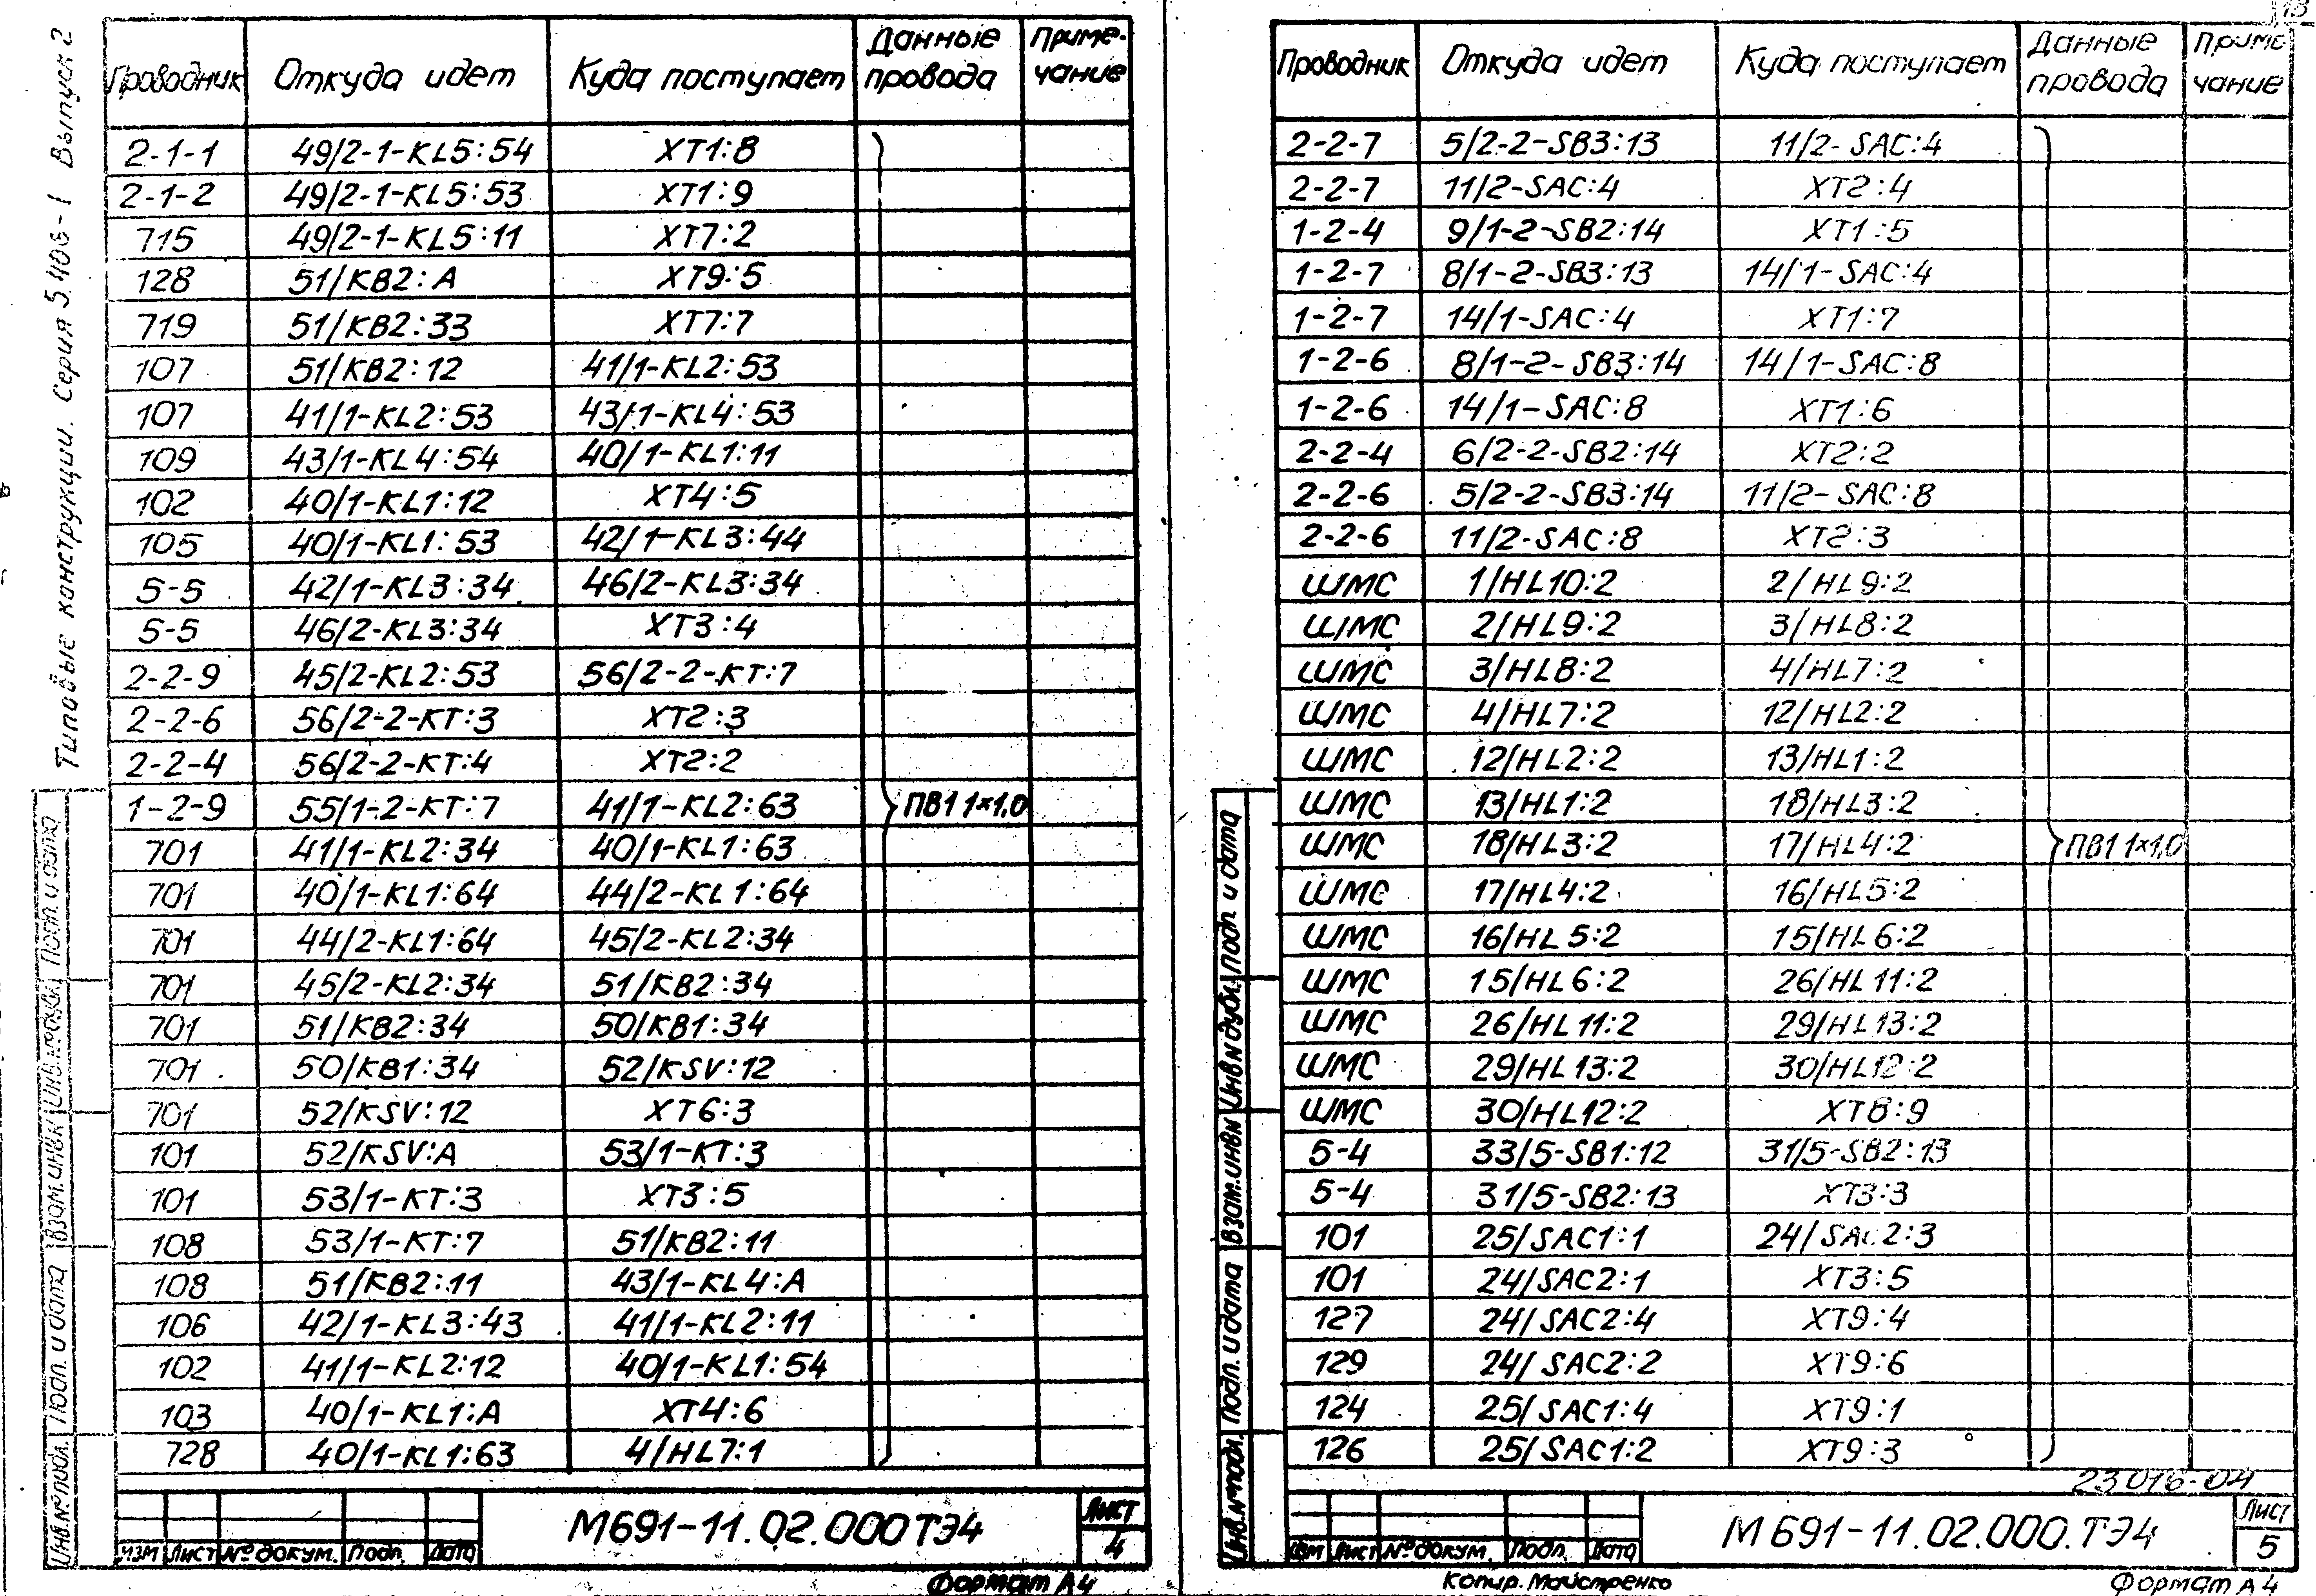 Типовые конструкции. Серия 5.406-1 Выпуск 2
Проводник Откуда идет Куда поступает Данные провода Примечание
2-1-1 49/2-1-KL5:54 XT1:8
2-1-2 49/2-1-KL5:53 XT1:9
715 49/2-1-KL5:11 XT7:2
128 51/KB2:A XT9:5
719 51/KB2:33 XT7:7
107 51/KB2:12 41/1-KL2:53
107 41/1-KL2:53 43/1-KL4:53
109 43/1-KL4:54 40/1-KL1:11
102 40/1-KL1:12 XT4:5
105 40/1-KL1:53 42/1-KL3:44
5-5 42/1-KL3:34 46/2-KL3:34
5-5 46/2-KL3:34 XT3:4
2-2-9 45/2-KL2:53 56/2-2-KT:7
2-2-6 56/2-2-KT:3 XT2:3
2-2-4 56/2-2-KT:4 XT2:2
1-2-9 55/1-2-KT:7 41/1-KL2:63 ПВ1 1×1,0
701 41/1-KL2:34 40/1-KL1:63
701 40/1-KL1:64 44/2-KL1:64
701 44/2-KL1:64 45/2-KL2:34
701 45/2-KL2:34 51/KB2:34
701 51/KB2:34 50/KB1:34
701 50/KB1:34 52/KSV:12
701 52/KSV:12 XT6:3
101 52/KSV:A 53/1-KT:3
101 53/1-KT:3 XT3:5
108 53/1-KT:7 51/KB2:11
108 51/KB2:11 43/1-KL4:A
106 42/1-KL3:43 41/1-KL2:11
102 41/1-KL2:12 40/1-KL1:54
103 40/1-KL1:A XT4:6
728 40/1-KL1:63 4/HL7:1
Инв.№подл. Подп. и дата Взам.инв.№ Инв.№дубл. Подп. и дата
Изм Лист №докум. Подп. Дата
М691-11.02.000ТЭ4
Лист
4
Формат А4
13
Проводник Откуда идет Куда поступает Данные провода Примечание
2-2-7 5/2-2-SB3:13 11/2-SAC:4
2-2-7 11/2-SAC:4 XT2:4
1-2-4 9/1-2-SB2:14 XT1:5
1-2-7 8/1-2-SB3:13 14/1-SAC:4
1-2-7 14/1-SAC:4 XT1:7
1-2-6 8/1-2-SB3:14 14/1-SAC:8
1-2-6 14/1-SAC:8 XT1:6
2-2-4 6/2-2-SB2:14 XT2:2
2-2-6 5/2-2-SB3:14 11/2-SAC:8
2-2-6 11/2-SAC:8 XT2:3
ШМС 1/HL10:2 2/HL9:2
ШМС 2/HL9:2 3/HL8:2
ШМС 3/HL8:2 4/HL7:2
ШМС 4/HL7:2 12/HL2:2
ШМС 12/HL2:2 13/HL1:2
ШМС 13/HL1:2 18/HL3:2
ШМС 18/HL3:2 17/HL4:2 ПВ1 1×1,0
ШМС 17/HL4:2 16/HL5:2
ШМС 16/HL5:2 15/HL6:2
ШМС 15/HL6:2 26/HL11:2
ШМС 26/HL11:2 29/HL13:2
ШМС 29/HL13:2 30/HL12:2
ШМС 30/HL12:2 XT8:9
5-4 33/5-SB1:12 31/5-SB2:13
5-4 31/5-SB2:13 XT3:3
101 25/SAC1:1 24/SAC2:3
101 24/SAC2:1 XT3:5
127 24/SAC2:4 XT9:4
129 24/SAC2:2 XT9:6
124 25/SAC1:4 XT9:1
126 25/SAC1:2 XT9:3
23016-04
Инв.№подл. Подп. и дата Взам.инв.№ Инв.№дубл. Подп. и дата
Изм Лист №докум. Подп. Дата
М691-11.02.000.ТЭ4
Лист
5
Копир. Майстренко
Формат А4